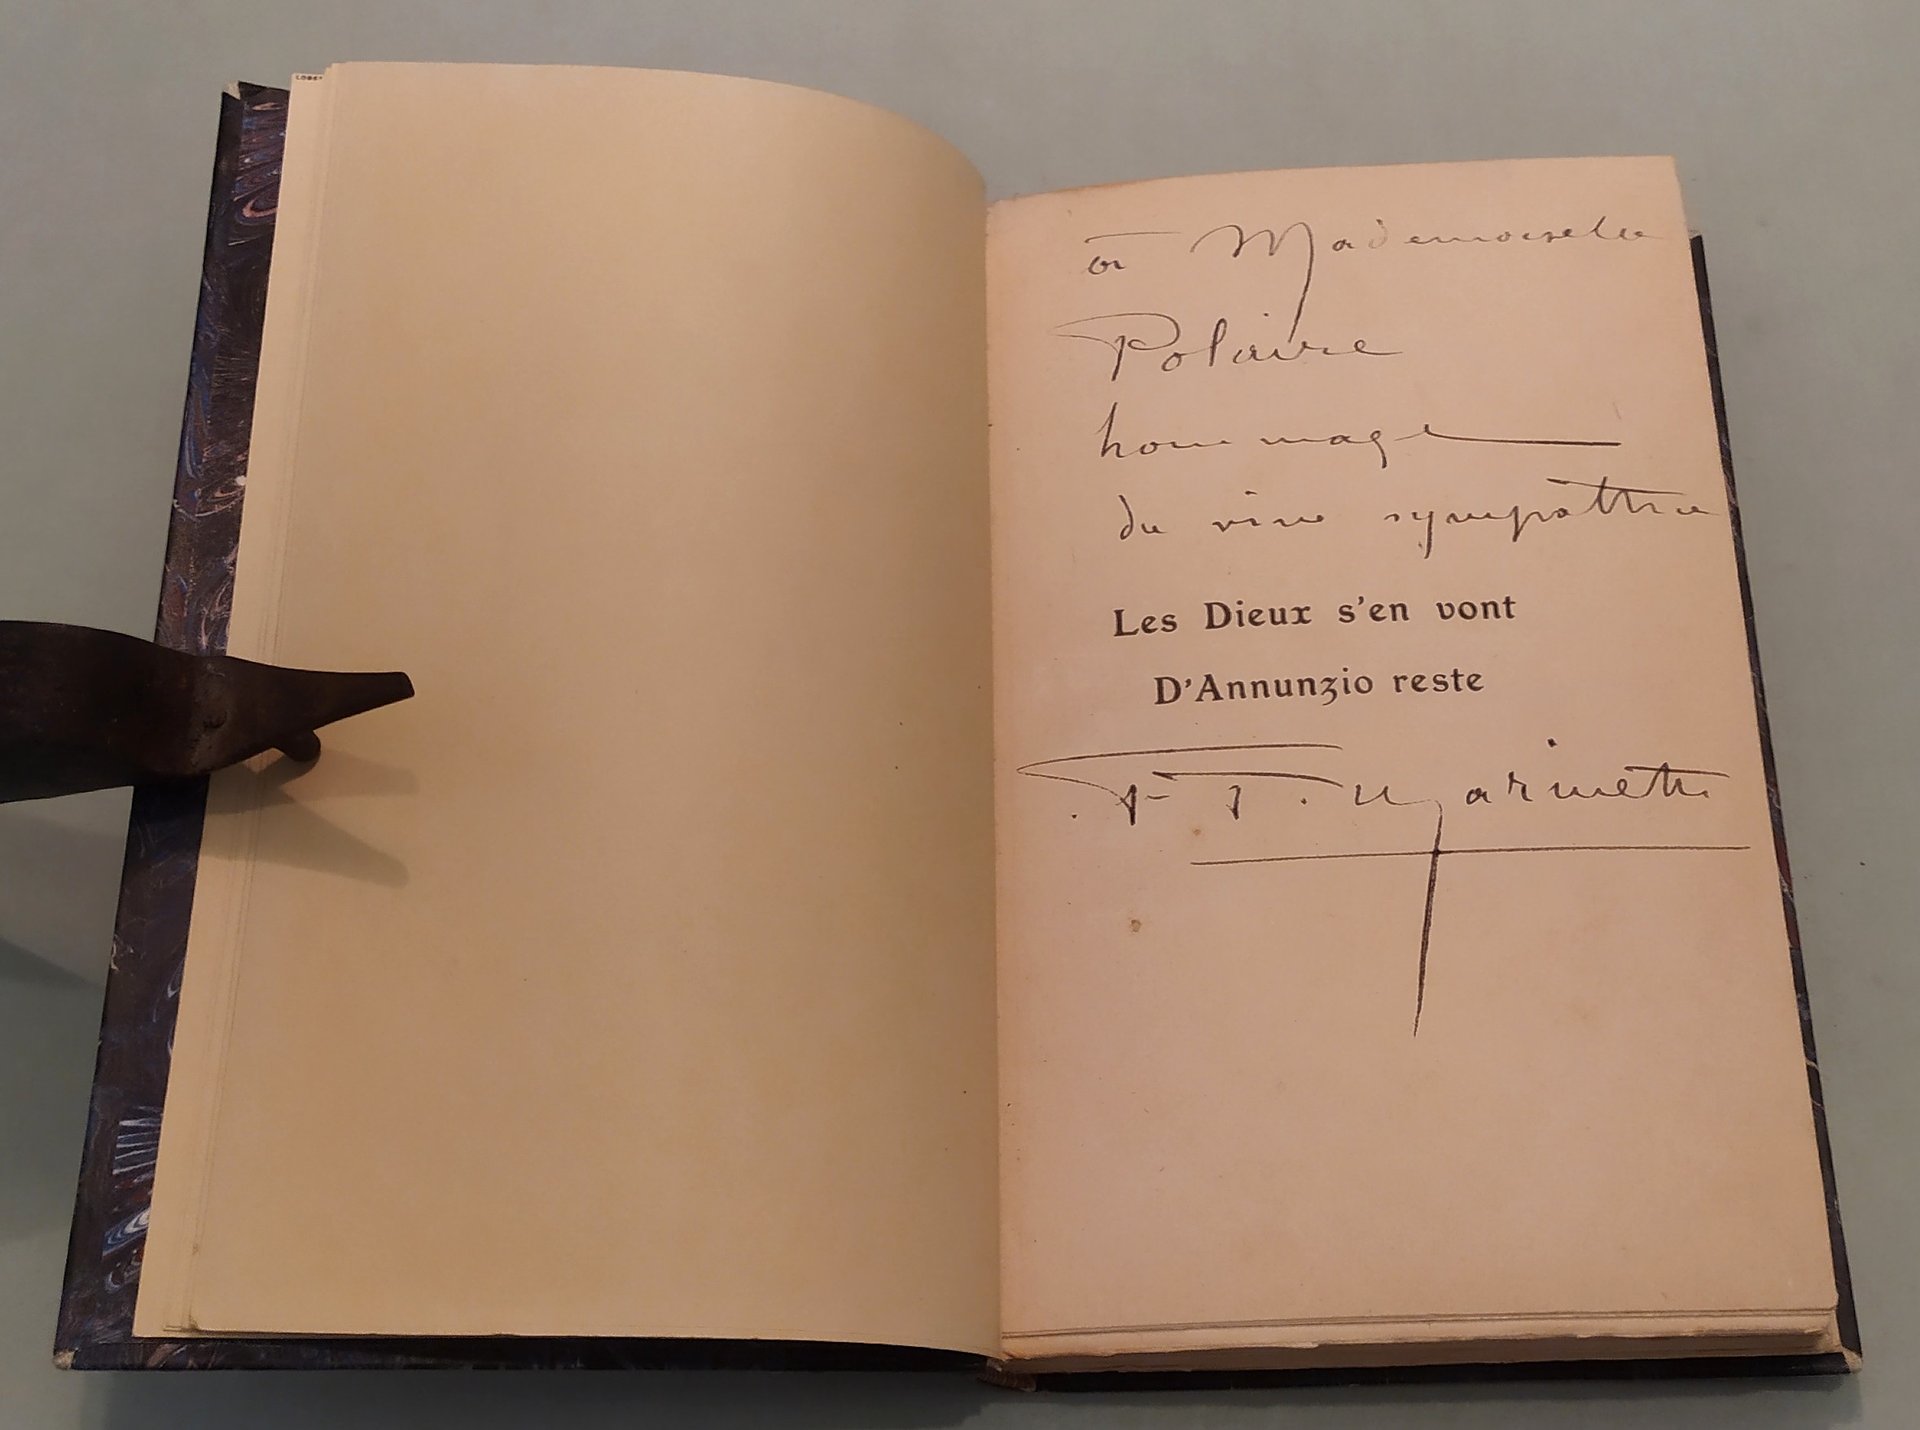 à Mademoiselle
Polaire
hommage
de vive sympathie
Les Dieux s'en vont
D'Annunzio reste
F. T. Marinetti